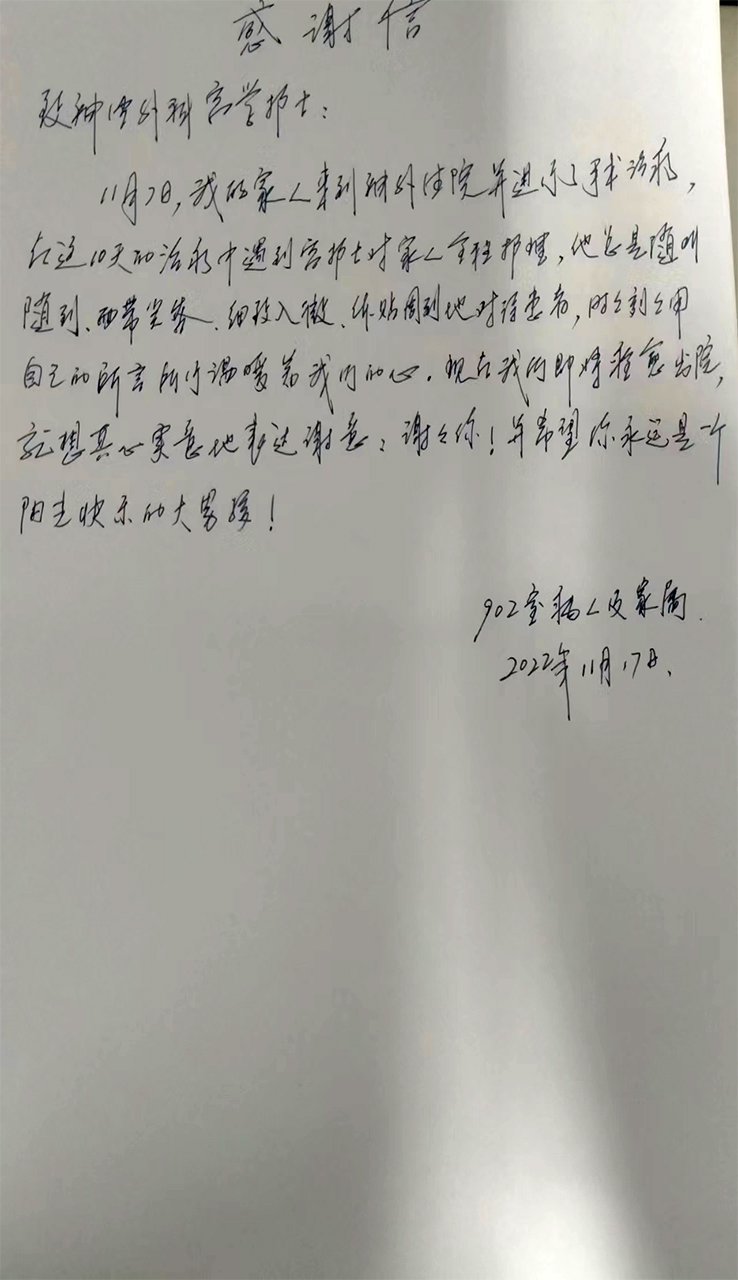 感谢信
致神经外科宫学护士：
11月7日，我的家人来到神外住院并进行了手术治疗，
在这10天的治疗中遇到宫护士对家人全程护理，他总是随叫
随到、面带笑容、细致入微、体贴周到地对待患者，时时刻刻用
自己的所言所行温暖着我们的心。现在我们即将痊愈出院，
就想真心实意地表达谢意：谢谢你！并希望你永远是一个
阳光快乐的大男孩！
902室病人及家属.
2022年11月17日.